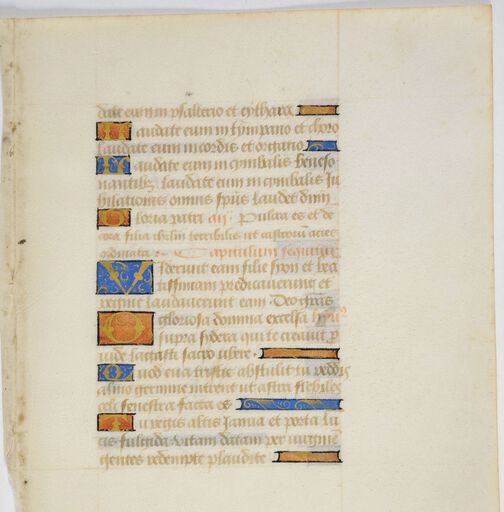 date eum in psalterio et cythara
Laudate eum in tympano et choro
laudate eum in cordis et organo
Laudate eum in cymbalis beneso
nantibus laudate eum in cymbalis iu
bilationis omnis spūs laudet dnm
Gloria patri añ Pulcra es et de
cora filia ihrlm terribilis ut castrorū acies
ordinata Capitulum sequitur
Viderunt eam filie syon et bea
tissimam predicaverunt et
regine laudaverunt eam Deo grās
O gloriosa domina excelsa
supra sydera qui te creavit p
vide lactasti sacro ubere
Quod eva tristis abstulit tu reddis
almo germine intrent ut astra flebiles
celi fenestra facta es
Tu regis alti ianua et porta lu
cis fulgida vitam datam per virginē
gentes redempte plaudite